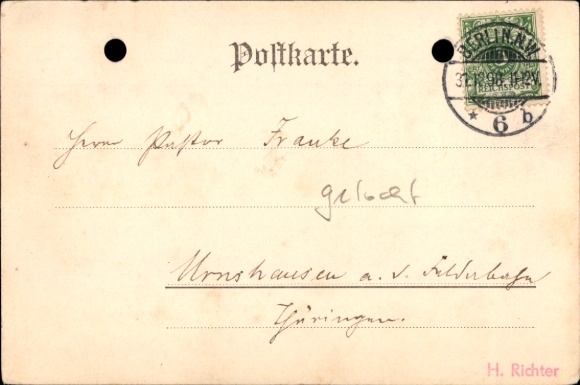 Postkarte.
BERLIN, N.W.
31.12.98. 11-12V.
* 6 b
REICHSPOST
Herrn Pastor Franke
gelocht
Urnshausen a. d. Feldabahn
Thüringen.
H. Richter